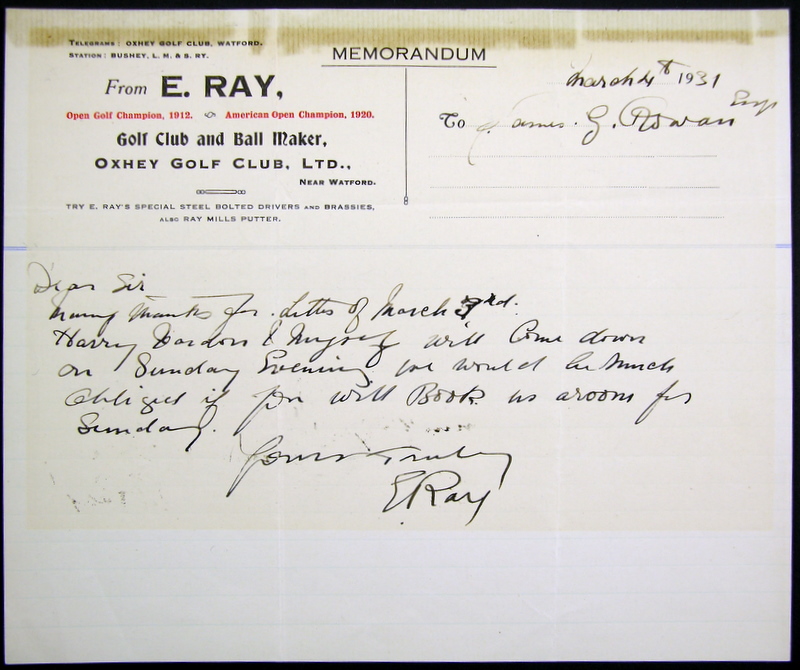 TELEGRAMS: OXHEY GOLF CLUB, WATFORD.
STATION: BUSHEY, L. M. & S. RY.
MEMORANDUM
From E. RAY,
Open Golf Champion, 1912. American Open Champion, 1920.
Golf Club and Ball Maker,
OXHEY GOLF CLUB, LTD.,
NEAR WATFORD.
TRY E. RAY'S SPECIAL STEEL BOLTED DRIVERS AND BRASSIES,
ALSO RAY MILLS PUTTER.
March 4th 1931
To James. G. Rowan Esq
Dear Sir
Many thanks for Letter of March 3rd.
Harry Vardon & Myself will Come down
on Sunday Evening we would be Much
Obliged if you will Book us a room for
Sunday.
Yours Truly
E Ray